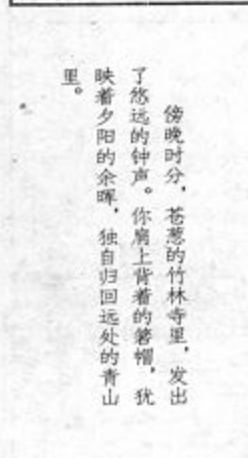 傍晚时分，苍葱的竹林寺里，发出
了悠远的钟声。你肩上背着的箬帽，犹
映着夕阳的余晖，独自归回远处的青山
里。